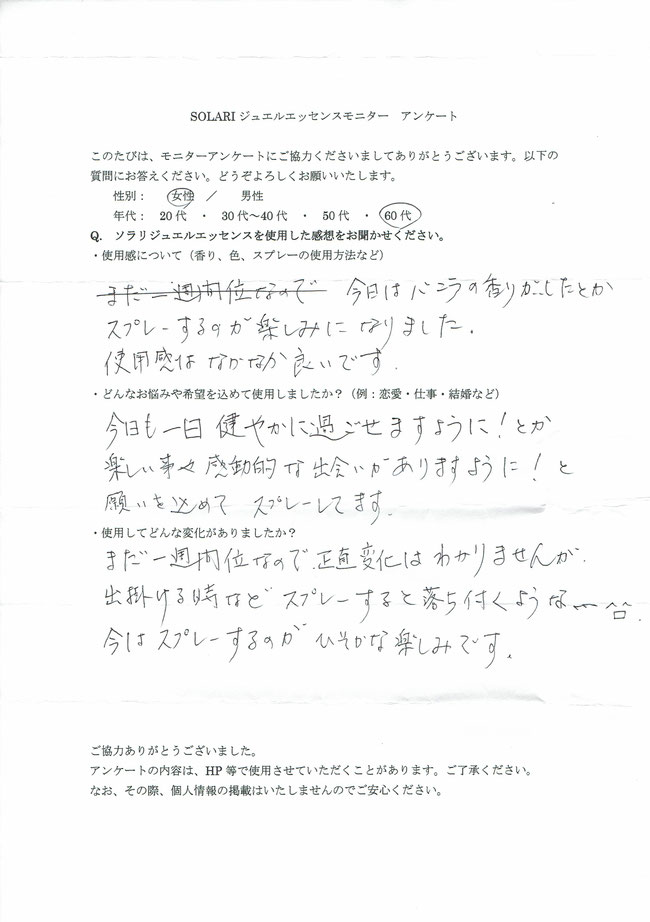 SOLARI ジュエルエッセンスモニター　アンケート
このたびは、モニターアンケートにご協力くださいましてありがとうございます。以下の
質問にお答えください。どうぞよろしくお願いいたします。
性別：　女性　／　男性
年代：　20代　・　30代～40代　・　50代　・　60代
Q.　ソラリジュエルエッセンスを使用した感想をお聞かせください。
・使用感について（香り、色、スプレーの使用方法など）
まだ一週間位なので 今日はバニラの香りがしたとか
スプレーするのが楽しみになりました.
使用感はなかなか良いです.
・どんなお悩みや希望を込めて使用しましたか？（例：恋愛・仕事・結婚など）
今日も一日健やかに過ごせますように！とか
楽しい事や感動的な出会いがありますように！と
願いを込めて スプレーしてます.
・使用してどんな変化がありましたか？
まだ一週間位なので.正直変化はわかりませんが.
出掛ける時など スプレーすると落ち付くような〜
今はスプレーするのが ひそかな楽しみです.
ご協力ありがとうございました。
アンケートの内容は、HP等で使用させていただくことがあります。ご了承ください。
なお、その際、個人情報の掲載はいたしませんのでご安心ください。